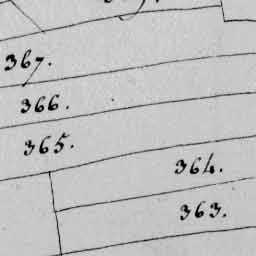 367.
366.
365.
364.
363.